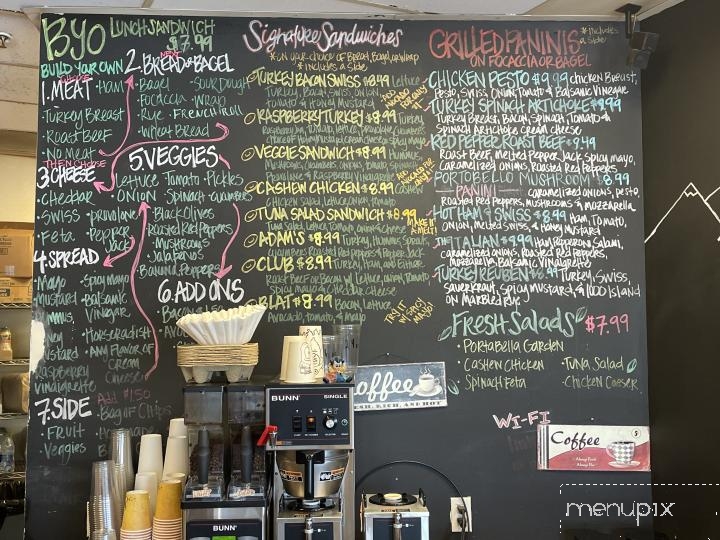 BYO LUNCH SANDWICH
$7.99
BUILD YOUR OWN
1. MEAT
·Ham
·Turkey Breast
·Roast Beef
·No Meat
THEN CHOOSE
3. CHEESE
·Cheddar
·Swiss ·provolone
·Feta ·Pepper Jack
4. SPREAD
Mayo ·Spicy mayo
Mustard ·Balsamic Vinegar
·Horseradish
·Any Flavor of Cream Cheese
Raspberry
Vinaigrette
7. SIDE Add $1.50
·Bag of Chips
·FRUIT
·Veggies
2. BREAD or BAGEL
·Bagel ·Sour Dough
·Focaccia ·Wrap
·Rye ·French Roll
·Wheat Bread
5. VEGGIES
·Lettuce ·Tomato ·Pickles
·ONION ·Spinach ·cucumbers
·Black Olives
·Roasted Red Peppers
·Mushrooms
·Jalapeños
·Banana Peppers
6. ADD ONS
Signature Sandwiches
*on your choice of Bread, Bagel, or Wrap
*includes a Side,
TURKEY BACON SWISS $8.99 lettuce,
Turkey, Bacon, Swiss, onion,
Tomato & Honey Mustard
RASPBERRY TURKEY $8.99 Turkey,
VEGGIE SANDWICH $8.99 Hummus,
Provolone & Raspberry Vinaigrette
CASHEW CHICKEN $8.99
Chicken Salad, lettuce, onion, tomato
TUNA SALAD SANDWICH $8.99
Tuna Salad, lettuce, Tomato, onion & Cheese
ADAM'S $8.99 Turkey, Hummus, Sprouts,
cucumbers, Roasted Red peppers & Pepper Jack
CLUB $8.99 Turkey, Ham, and Either
Roast Beef or Bacon w/ lettuce, onion, Tomato,
Spicy mayo & Cheddar Cheese
BLAT $8.99 Bacon, Lettuce,
Avocado, tomato, & mayo
MAKE IT A MELT!
TRY IT W/ SPICY MAYO!
GRILLED PANINIS *includes a Side
ON FOCACCIA OR BAGEL
CHICKEN PESTO $9.99 chicken Breast,
Pesto, Swiss, Onion, Tomato & Balsamic Vinegare
TURKEY SPINACH ARTICHOKE $9.99
Turkey Breast, Bacon, Spinach, Tomato &
Spinach Artichoke cream cheese
RED PEPPER ROAST BEEF $9.49
Roast Beef, melted Pepper Jack, Spicy mayo,
caramelized onions, Roasted Red Peppers
PORTOBELLO MUSHROOM $8.99
PANINI caramelized onions, pesto,
Roasted Red Peppers, Mushrooms & mozzarella
HOT HAM & SWISS $8.99 Ham, Tomato,
Onion, Melted Swiss, & Honey Mustard
THE ITALIAN $9.99 Ham, Pepperoni, Salami,
caramelized onions, Roasted Red Peppers,
Mozzarella, Balsamic Vinaigrette
TURKEY REUBEN $8.99 Turkey, Swiss,
Sauerkraut, Spicy mustard, & 1000 Island
on Marbled Rye
FRESH SALADS $7.99
·Portabella Garden
·Cashew Chicken ·Tuna Salad
·Spinach Feta ·Chicken Caeser
WI-FI
Coffee
FRESH, RICH, AND HOT
Coffee 5¢
BUNN SINGLE
BUNN
menupix